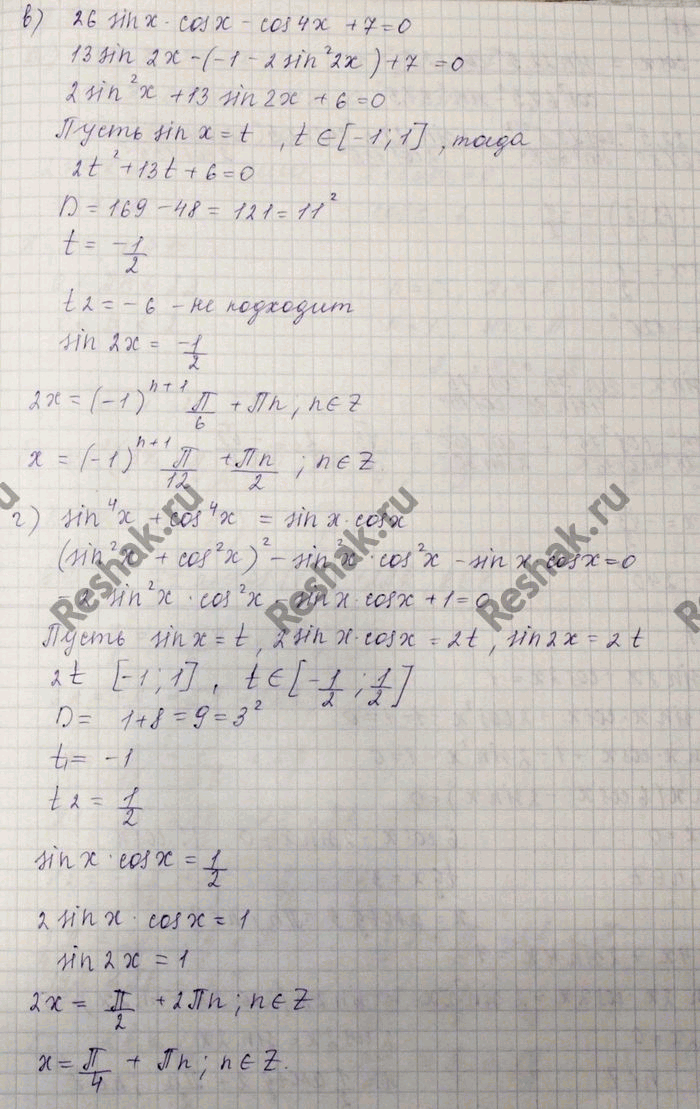 в) 26 sin x · cos x - cos 4x + 7 = 0
13 sin 2x - (-1 - 2 sin² 2x) + 7 = 0
2 sin² x + 13 sin 2x + 6 = 0
Пусть sin x = t , t ∈ [-1 ; 1] , тогда
2t² + 13t + 6 = 0
D = 169 - 48 = 121 = 11²
t = -1/2
t2 = -6 - не подходит
sin 2x = -1/2
2x = (-1)ⁿ⁺¹ П/6 + Пn ; n ∈ Z
x = (-1)ⁿ⁺¹ П/12 + Пn/2 ; n ∈ Z.
г) sin⁴x + cos⁴x = sin x · cos x
(sin²x + cos²x)² - sin²x · cos²x - sin x · cos x = 0
-2 sin²x · cos²x - sin x · cos x + 1 = 0
Пусть sin x = t , 2 sin x · cos x = 2t , sin 2x = 2t
2t [-1 ; 1] , t ∈ [-1/2 ; 1/2]
D = 1 + 8 = 9 = 3²
t1 = -1
t2 = 1/2
sin x · cos x = 1/2
2 sin x · cos x = 1
sin 2x = 1
2x = П/2 + 2Пn ; n ∈ Z
x = П/4 + Пn ; n ∈ Z.
Reshak.ru
Reshak.ru
Reshak.ru